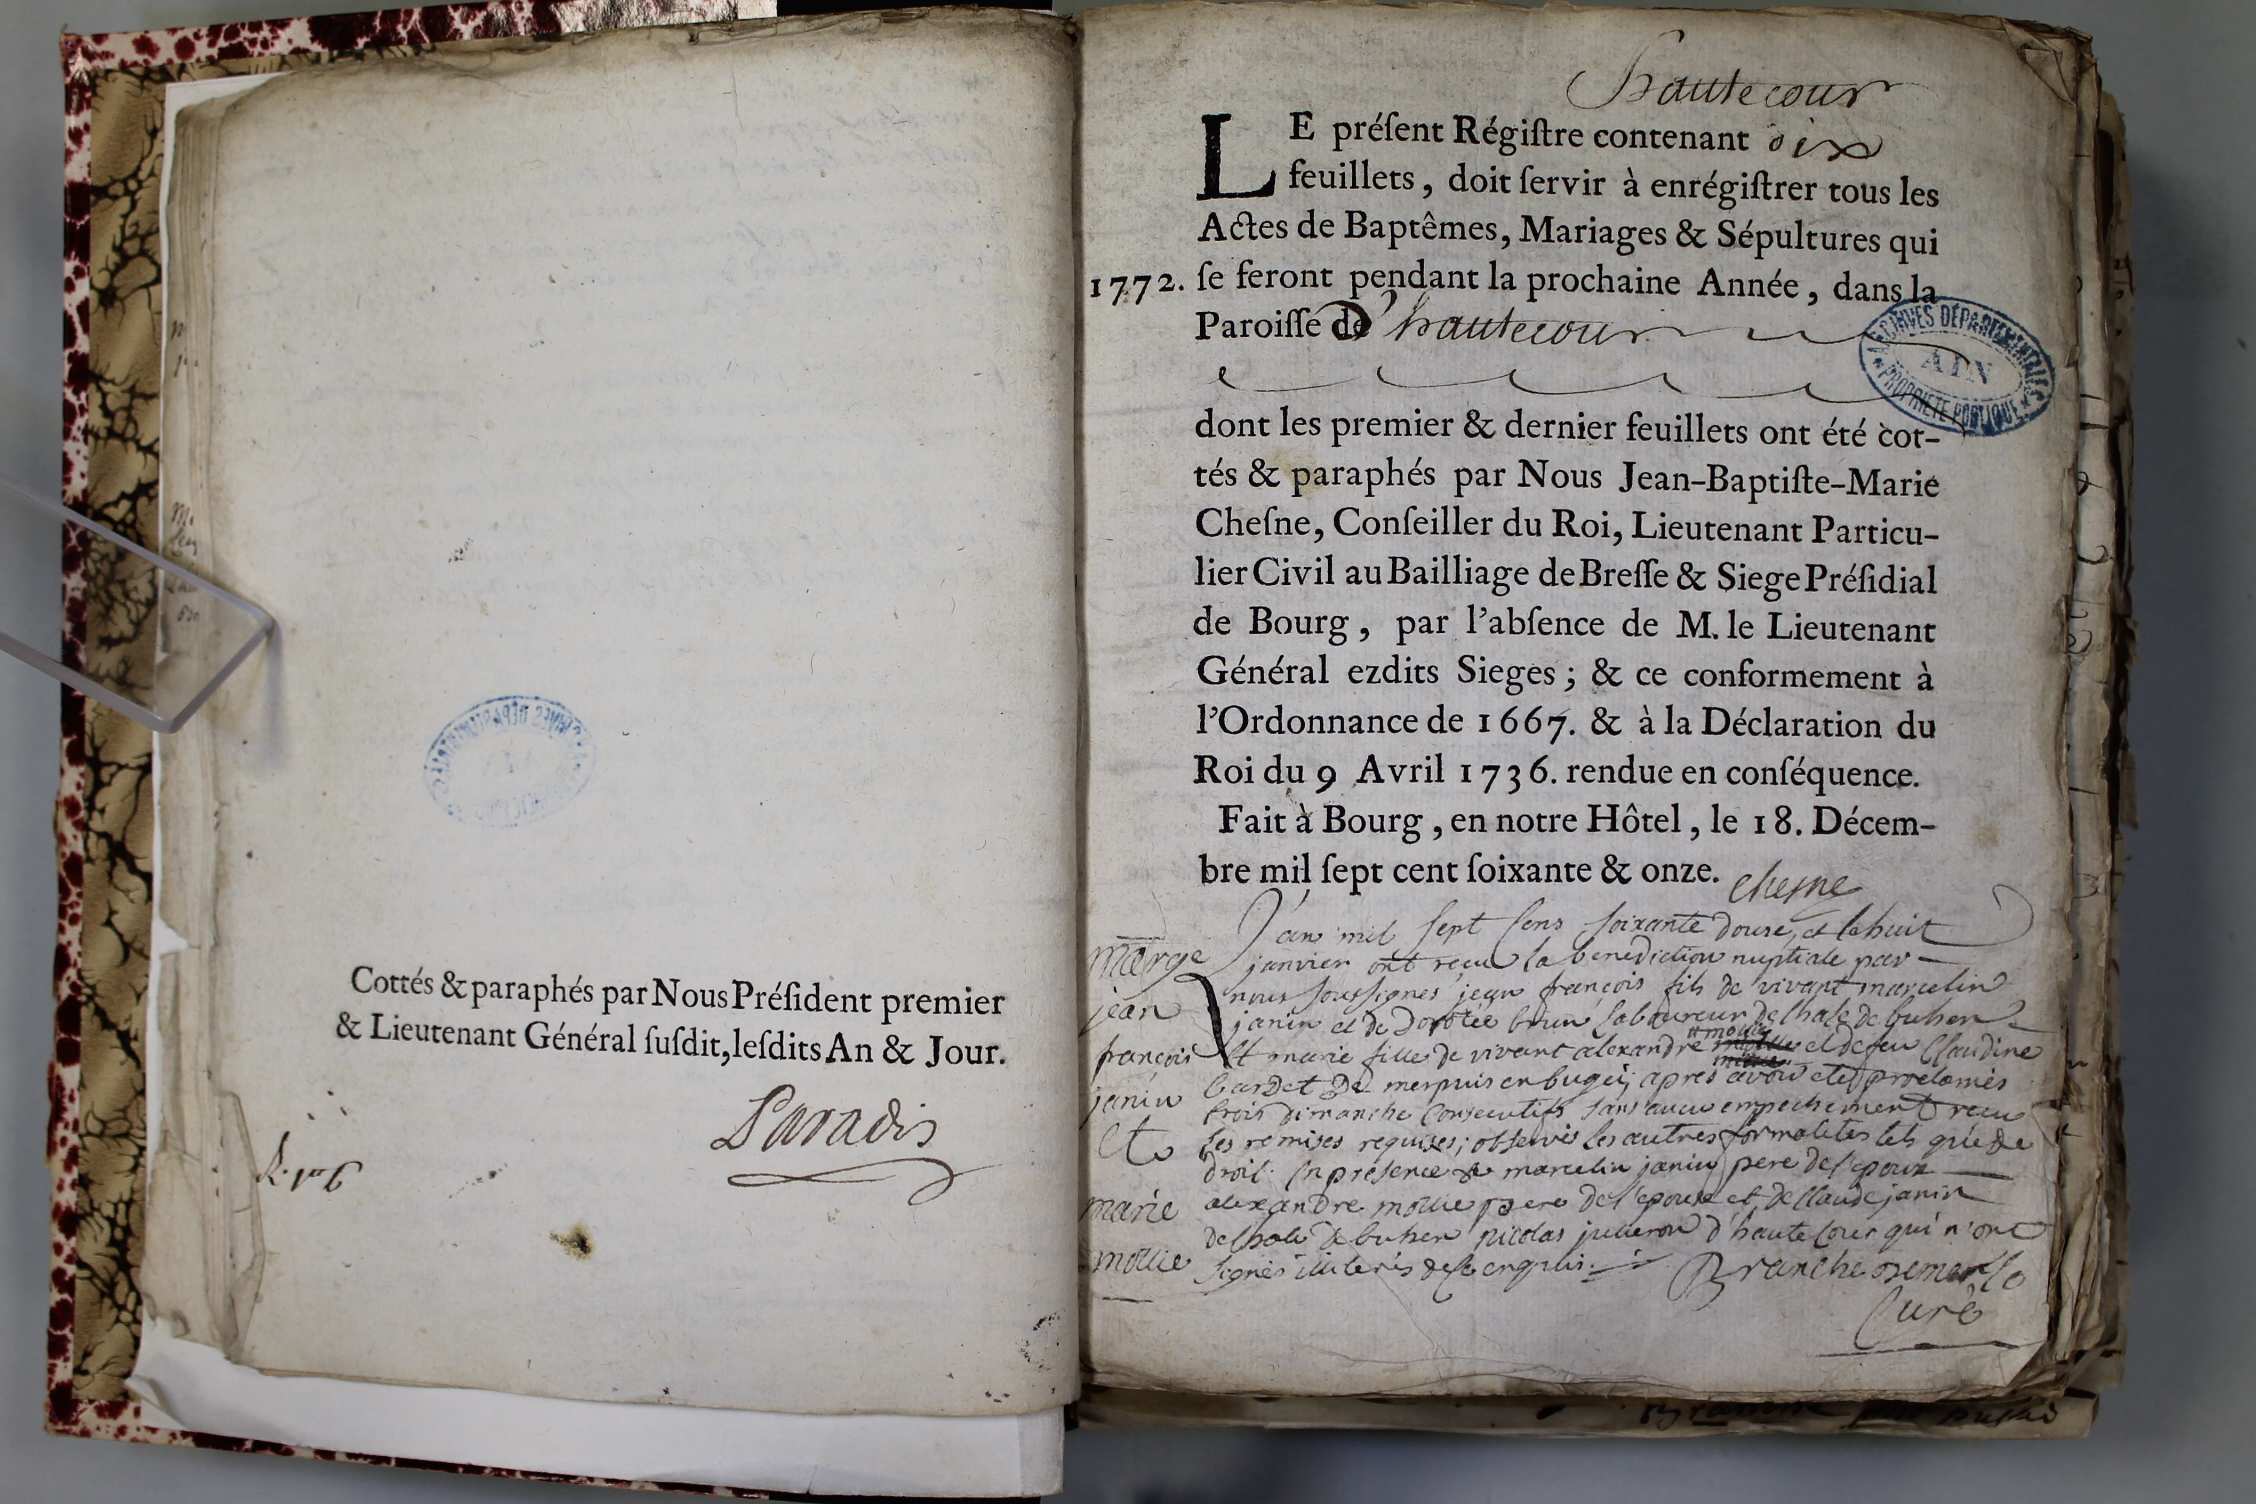 Cottés & paraphés par Nous Préſident premier
& Lieutenant Général ſuſdit, leſdits An & Jour.
Paradis
hautecour
LE préſent Régiſtre contenant dix
feuillets, doit ſervir à enrégiſtrer tous les
Actes de Baptêmes, Mariages & Sépultures qui
1772. ſe feront pendant la prochaine Année, dans la
Paroiſſe d'hautecour
ARCHIVES DÉPARTEMENTALES
AIN
PROPRIETE PUBLIQUE
dont les premier & dernier feuillets ont été cot-
tés & paraphés par Nous Jean-Baptiſte-Marie
Cheſne, Conſeiller du Roi, Lieutenant Particu-
lier Civil au Bailliage de Breſſe & Siege Préſidial
de Bourg, par l'abſence de M. le Lieutenant
Général ezdits Sieges; & ce conformement à
l'Ordonnance de 1667. & à la Déclaration du
Roi du 9 Avril 1736. rendue en conſéquence.
Fait à Bourg, en notre Hôtel, le 18. Décem-
bre mil ſept cent ſoixante & onze.
Chesne
marge
jean
françois
janin
et
marie
mollie
L'an mil sept cens soixante douze, et le huit
janvier ont reçu la benediction nuptiale par
nous soussignés jean françois fils de vivant marcelin
janin et de Dorotée brun laboureur de buhen
Et marie fille de vivant alexandre mollie et de feu Claudine
bardet de merpuis en bugey, apres avoir eté proclamés
trois dimanche consecutifs sans aucun empechement reçu
les remises requises; observés les autres formalités tels que de
droit. En présence de marcelin janin pere de l'epoux
alexandre mollie pere de l'epouse et de Claude janin
de buhen nicolas juilleron d'hautecour qui n'ont
signés illiterés de ce enquis.
Branche
Curé